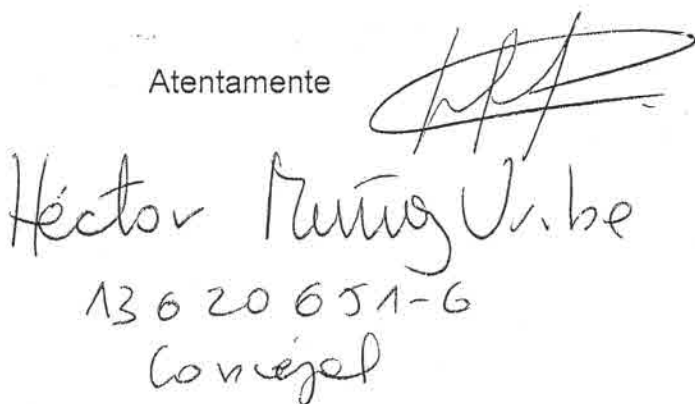 Atentamente
Héctor Muñoz Uribe
13620651-6
Concejal